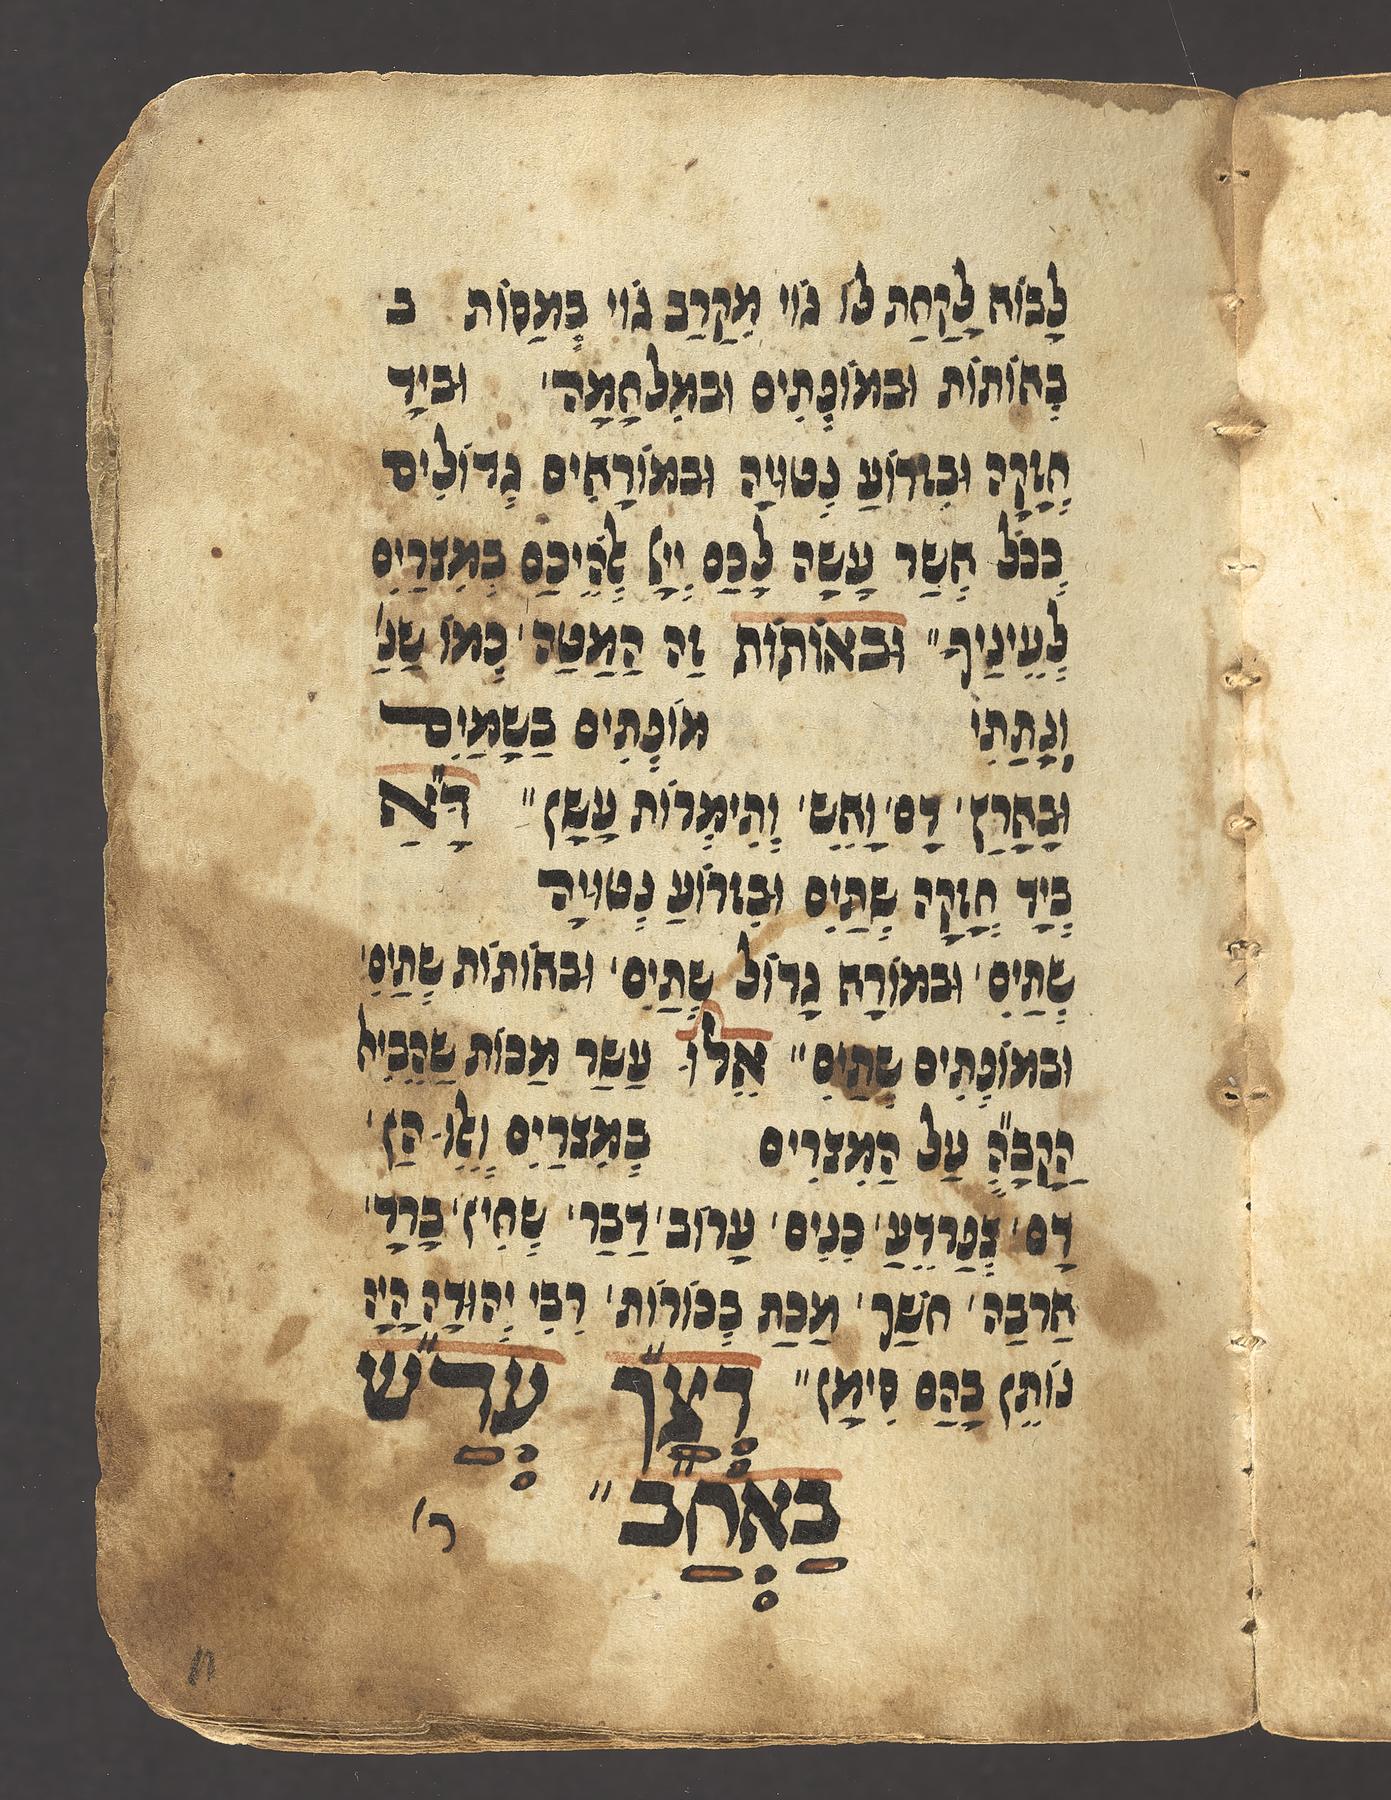 לָבוֹא לָקַחַת לוֹ גוֹי מִקֶרַב גוֹי בְמַסוֹת ב
בְאוֹתוֹת וּבמוֹפְתִים וּבמִלחָמָה' וּביָד
חֲזָקָה וּבִזרוֹעַ נְטוּיָה וּבמוֹרָאִים גְדוֹלִים
כְכֹל אֲשַר עָשָה לָכַם יְיָ אֱלֹהֵיכַם בְמִצרַיִם
לְעֵינַיךָ" וּבאוֹתוֹת זַה הַמַטַה' כְמוֹ שַנַ'
וְנָתַתִי מוֹפְתִים בַשָמַיִם
וּבָאָרַץ' דָם' וָאֵש' וְתִימְרוֹת עָשָן" דָ"אַ
בְיָד חֲזָקָה שְתַיִם וּבִזרוֹעַ נְטוּיָה
שְתַיִם' וּבמוֹרָא גָדוֹל שְתַיִם' וּבאוֹתוֹת שְתַיִם'
וּבמוֹפְתִים שְתַיִם" אֵלוּ עַשַר מַכוֹת שַהֵבִיא
הַקָבָ"הָ עַל הַמִצרִים בְמִצרַיִם וְאֵלוּ הַן'
דָם' צְפַרדֵעַ' כִנִים' עָרוֹב' דַבַר' שְחִין' בָרָד'
אַרבַה' חשַך' מַכַת בְכוֹרוֹת' רִבִי יְהוּדָה הָיָה
נוֹתֵן בָהַם סִימָן" דְצַ"ךְ עֲדַ"ש
בַאְחַ"ב"
ר'